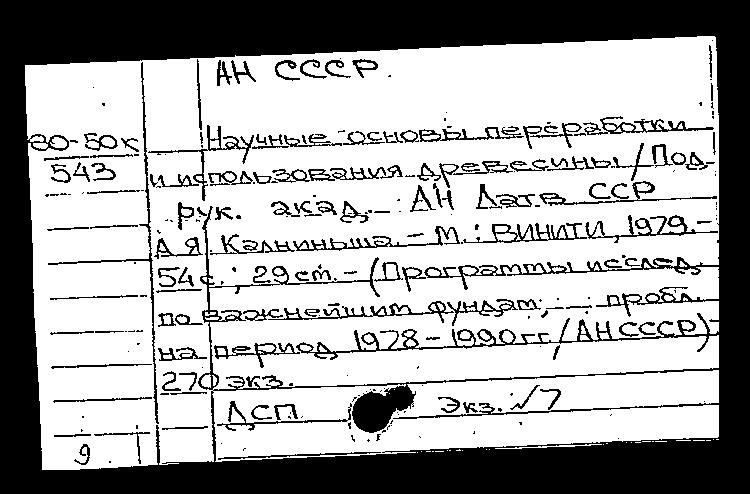 АН СССР.
80-50к
543
Научные основы переработки
и использования древесины / Под
рук. акад. АН Латв ССР
А.Я. Калниньша. – М.: ВИНИТИ, 1979. –
54 с.; 29 см. – (Программы исслед.
по важнейшим фундам. пробл.
на период 1978 – 1990 гг / АН СССР)
270 экз.
ДСП Экз. №7
9